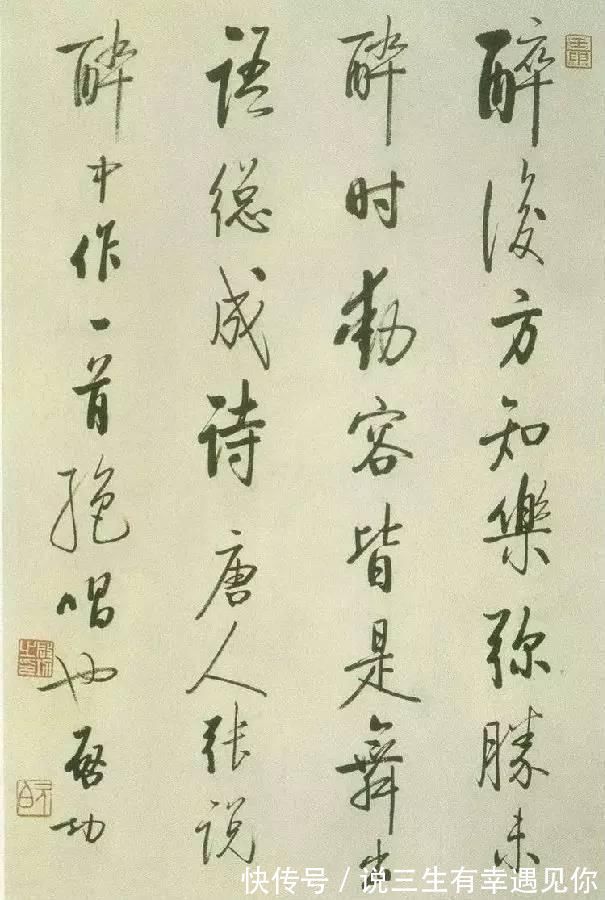 醉後方知樂弥勝未
醉时動容皆是舞出
语總成诗唐人张说
醉中作一首绝唱也啓功
快传号 / 说三生有幸遇见你